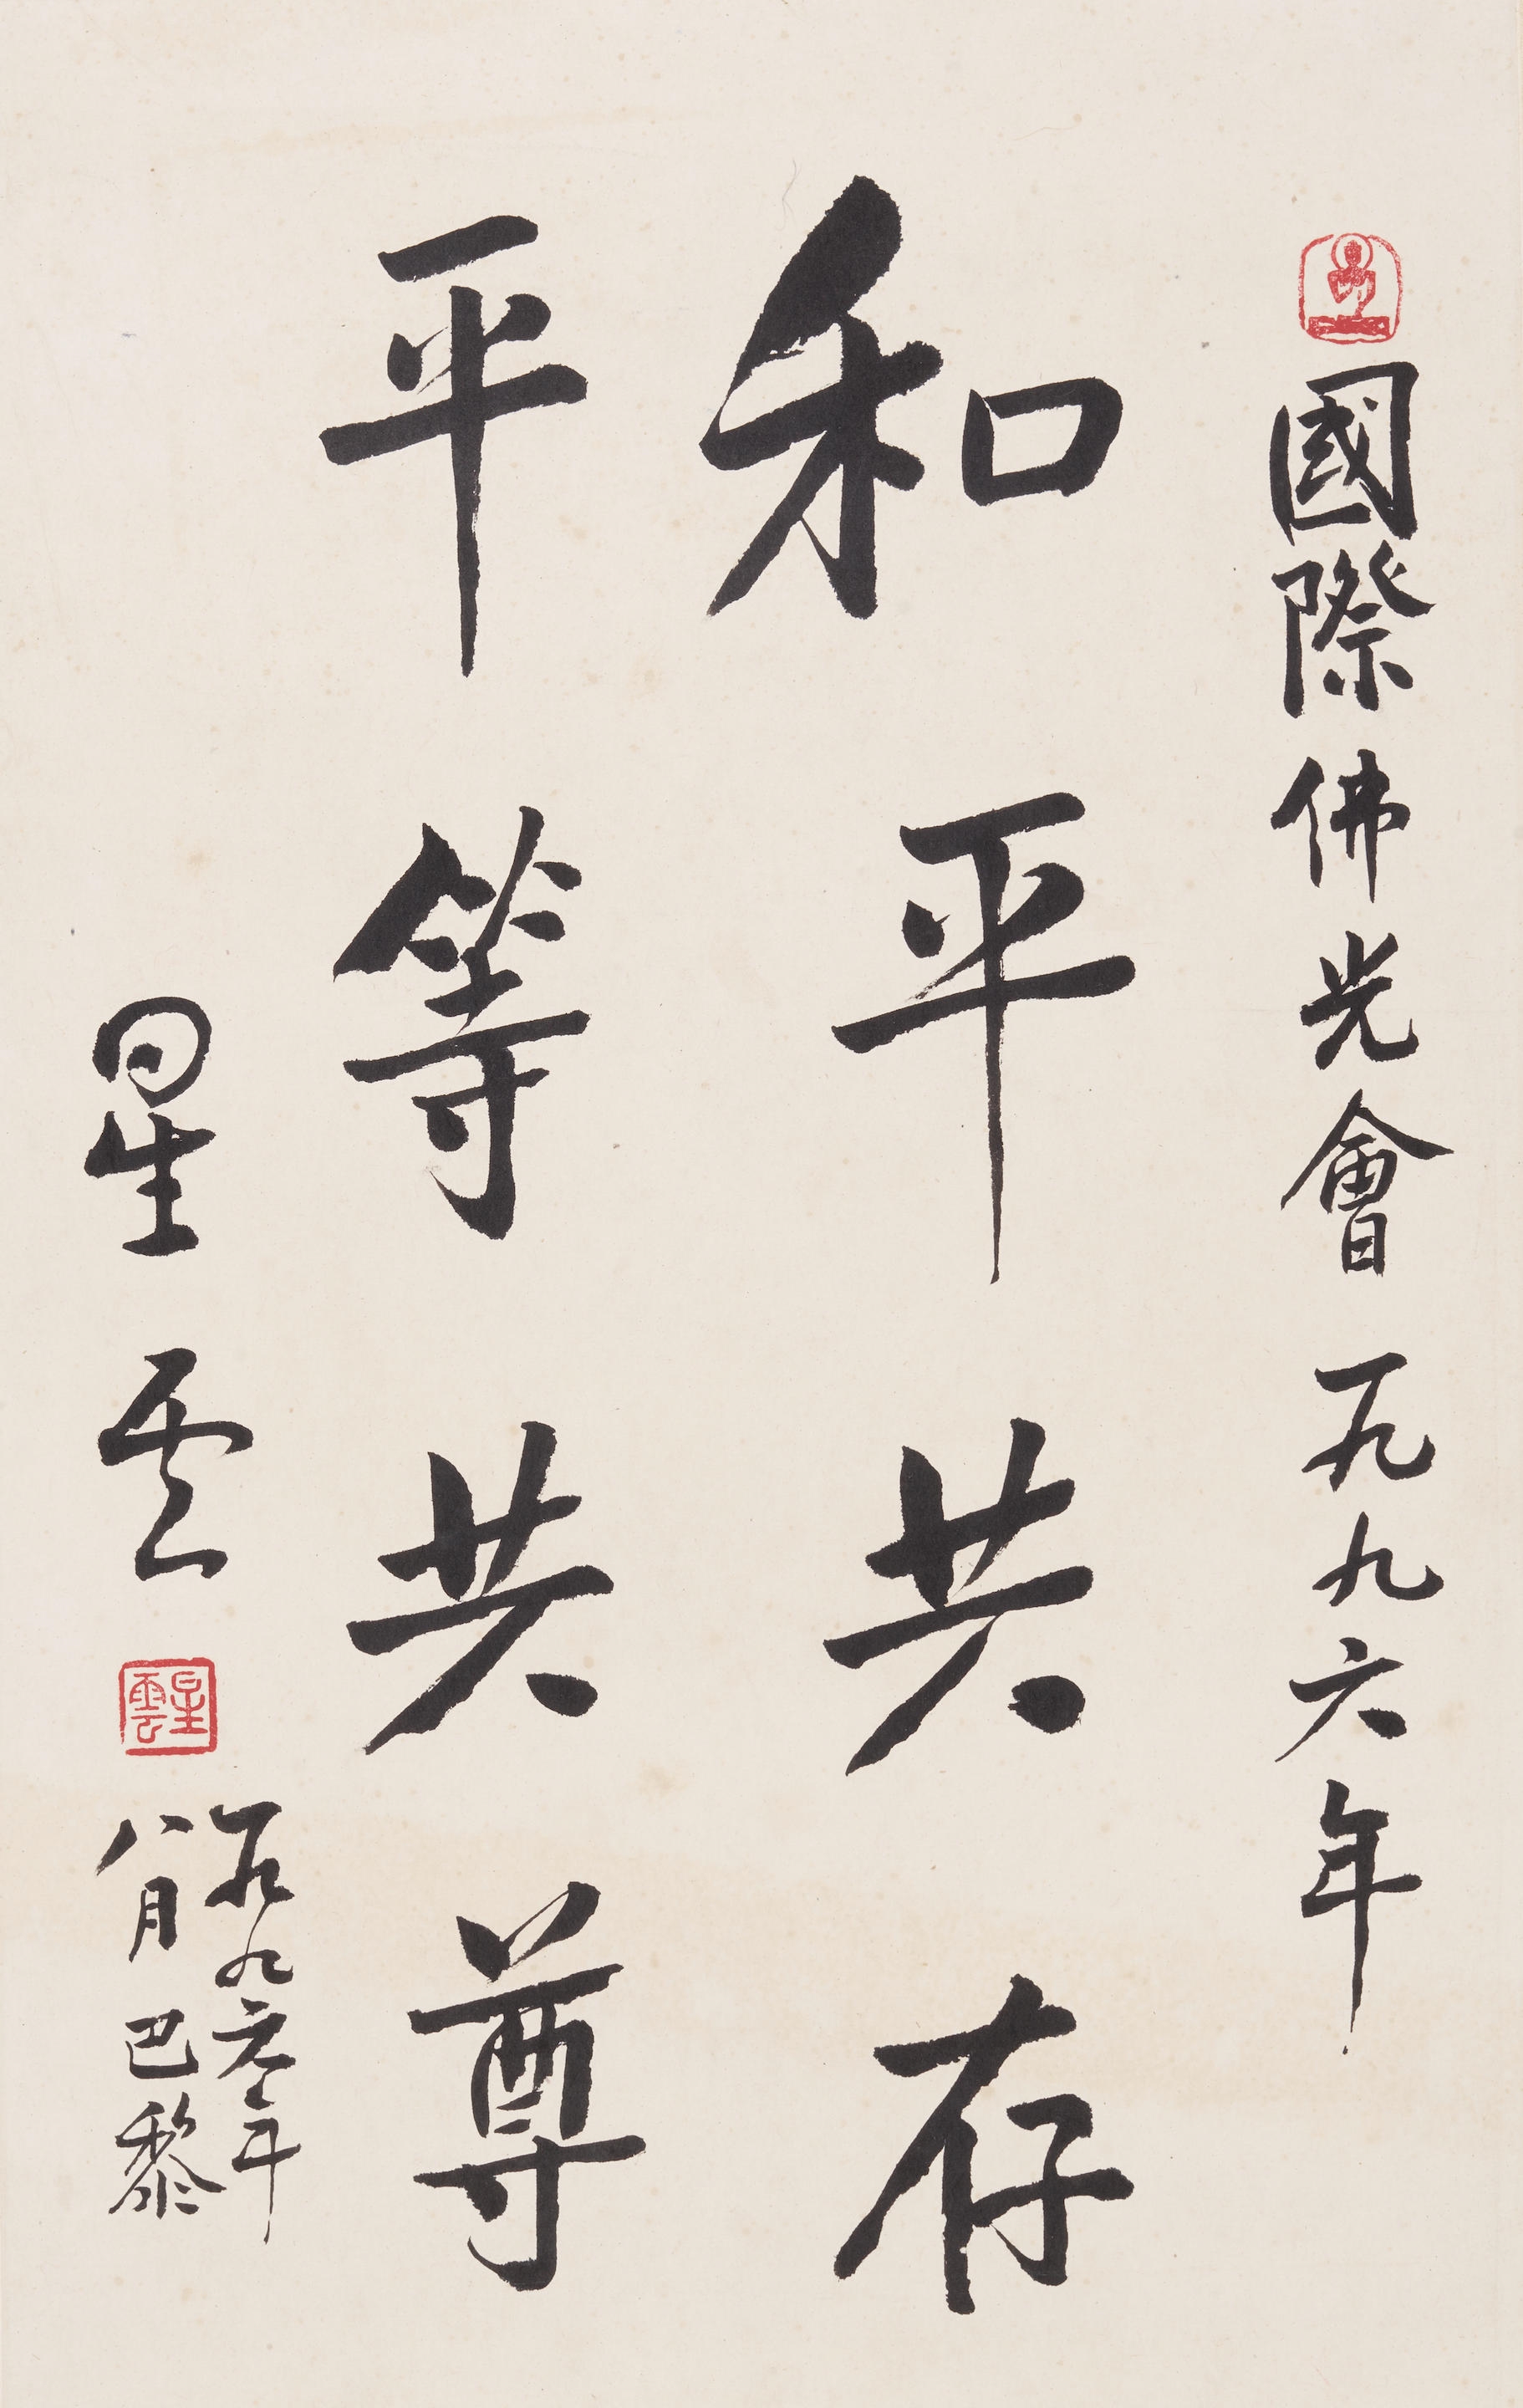 國際佛光會一九九六年
和平共存
平等共尊
星雲
星雲
一九九六年
八月巴黎